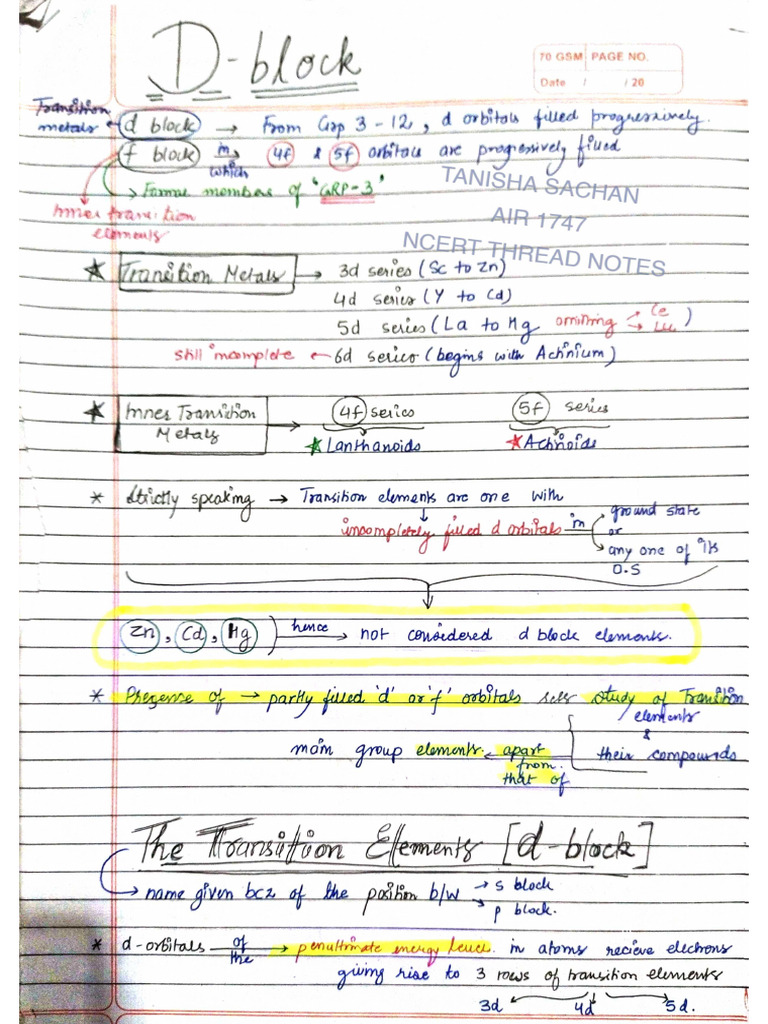 D-block
70 GSM PAGE NO.
Date / / 20
Transition metals ← d block → From Grp 3-12, d orbitals filled progressively.
f block in which 4f & 5f orbitals are progressively filled
→ Formal members of "GRP-3"
Inner transition elements
TANISHA SACHAN
AIR 1747
NCERT THREAD NOTES
★ Transition Metals → 3d series (Sc to Zn)
4d series (Y to Cd)
5d series (La to Hg omitting → Ce → Lu)
still incomplete ← 6d series (begins with Actinium)
★ Inner Transition Metals → 4f series 5f series
★ Lanthanoids ★ Actinoids
* Strictly speaking → Transition elements are one with
↓
incompletely filled d orbitals in ground state or any one of its O.S
Zn, Cd, Hg) hence → not considered d block elements.
* Presence of → partly filled 'd' or 'f' orbitals sets study of Transition elements
&
their compounds
apart from that of
main group elements.
The Transition Elements [d-block]
→ name given bcz of the position b/w → s block
→ p block.
* d-orbitals of the → penultimate energy level in atoms recieve electrons
giving rise to 3 rows of transition elements
3d 4d 5d.